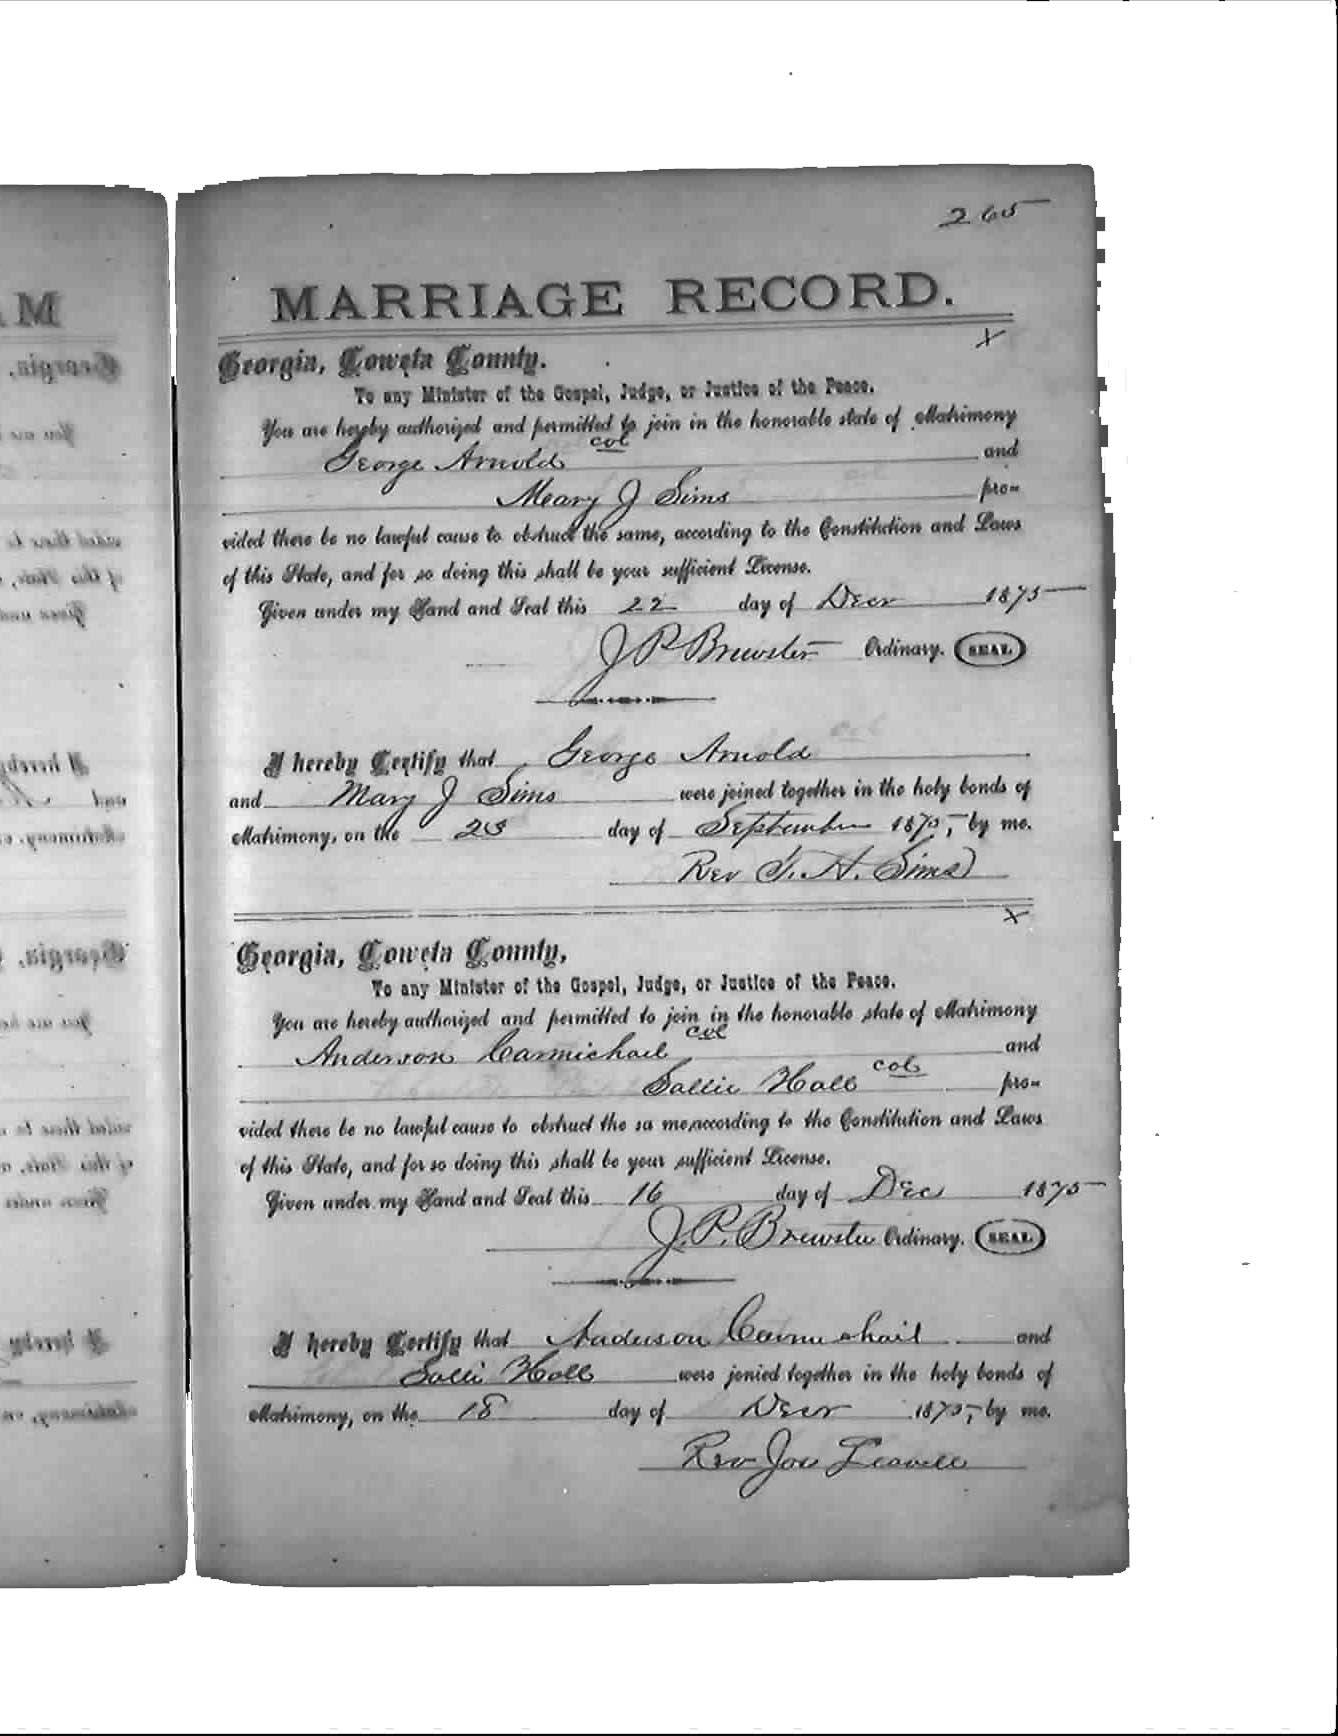 265
MARRIAGE RECORD.
X
Georgia, Coweta County.
To any Minister of the Gospel, Judge, or Justice of the Peace.
You are hereby authorized and permitted to join in the honorable state of Matrimony
George Arnold col and
Meary J Sims pro-
vided there be no lawful cause to obstruct the same, according to the Constitution and Laws
of this State, and for so doing this shall be your sufficient License.
Given under my Hand and Seal this 22 day of Decr 1875
J P Brewster Ordinary. SEAL
I hereby Certify that George Arnold
and Mary J Sims were joined together in the holy bonds of
Matrimony, on the 23 day of September 1875, by me.
Rev T. H. Sims
X
Georgia, Coweta County,
To any Minister of the Gospel, Judge, or Justice of the Peace.
You are hereby authorized and permitted to join in the honorable state of Matrimony
Anderson Carmichael col and
Sallie Hall col pro-
vided there be no lawful cause to obstruct the sa me,according to the Constitution and Laws
of this State, and for so doing this shall be your sufficient License.
Given under my Hand and Seal this 16 day of Dec 1875
J. P. Brewster Ordinary. SEAL
I hereby Certify that Anderson Carmichail and
Salli Hall were jonied together in the holy bonds of
Matrimony, on the 18 day of Decr 1875, by me.
Rev Joe Leavell